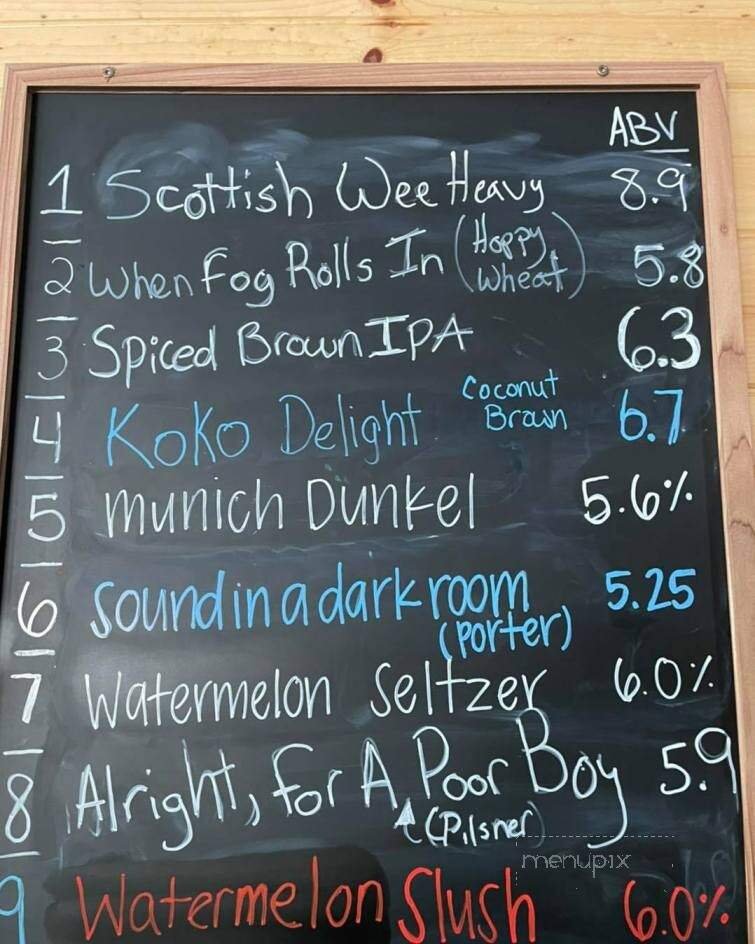 ABV
1 Scottish Wee Heavy 8.9
2 When Fog Rolls In (Hoppy Wheat) 5.8
3 Spiced Brown IPA 6.3
4 Koko Delight Coconut Brown 6.7
5 munich Dunkel 5.6%
6 sound in a dark room 5.25
(porter)
7 Watermelon Seltzer 6.0%
8 Alright, for A Poor Boy 5.9
(Pilsner)
menupix
9 Watermelon Slush 6.0%